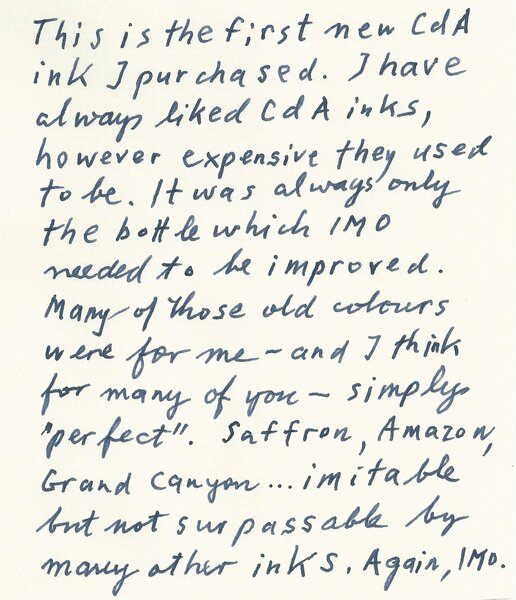 This is the first new CdA
ink I purchased. I have
always liked CdA inks,
however expensive they used
to be. It was always only
the bottle which IMO
needed to be improved.
Many of those old colours
were for me – and I think
for many of you – simply
"perfect". Saffron, Amazon,
Grand Canyon... imitable
but not surpassable by
many other inks. Again, IMO.